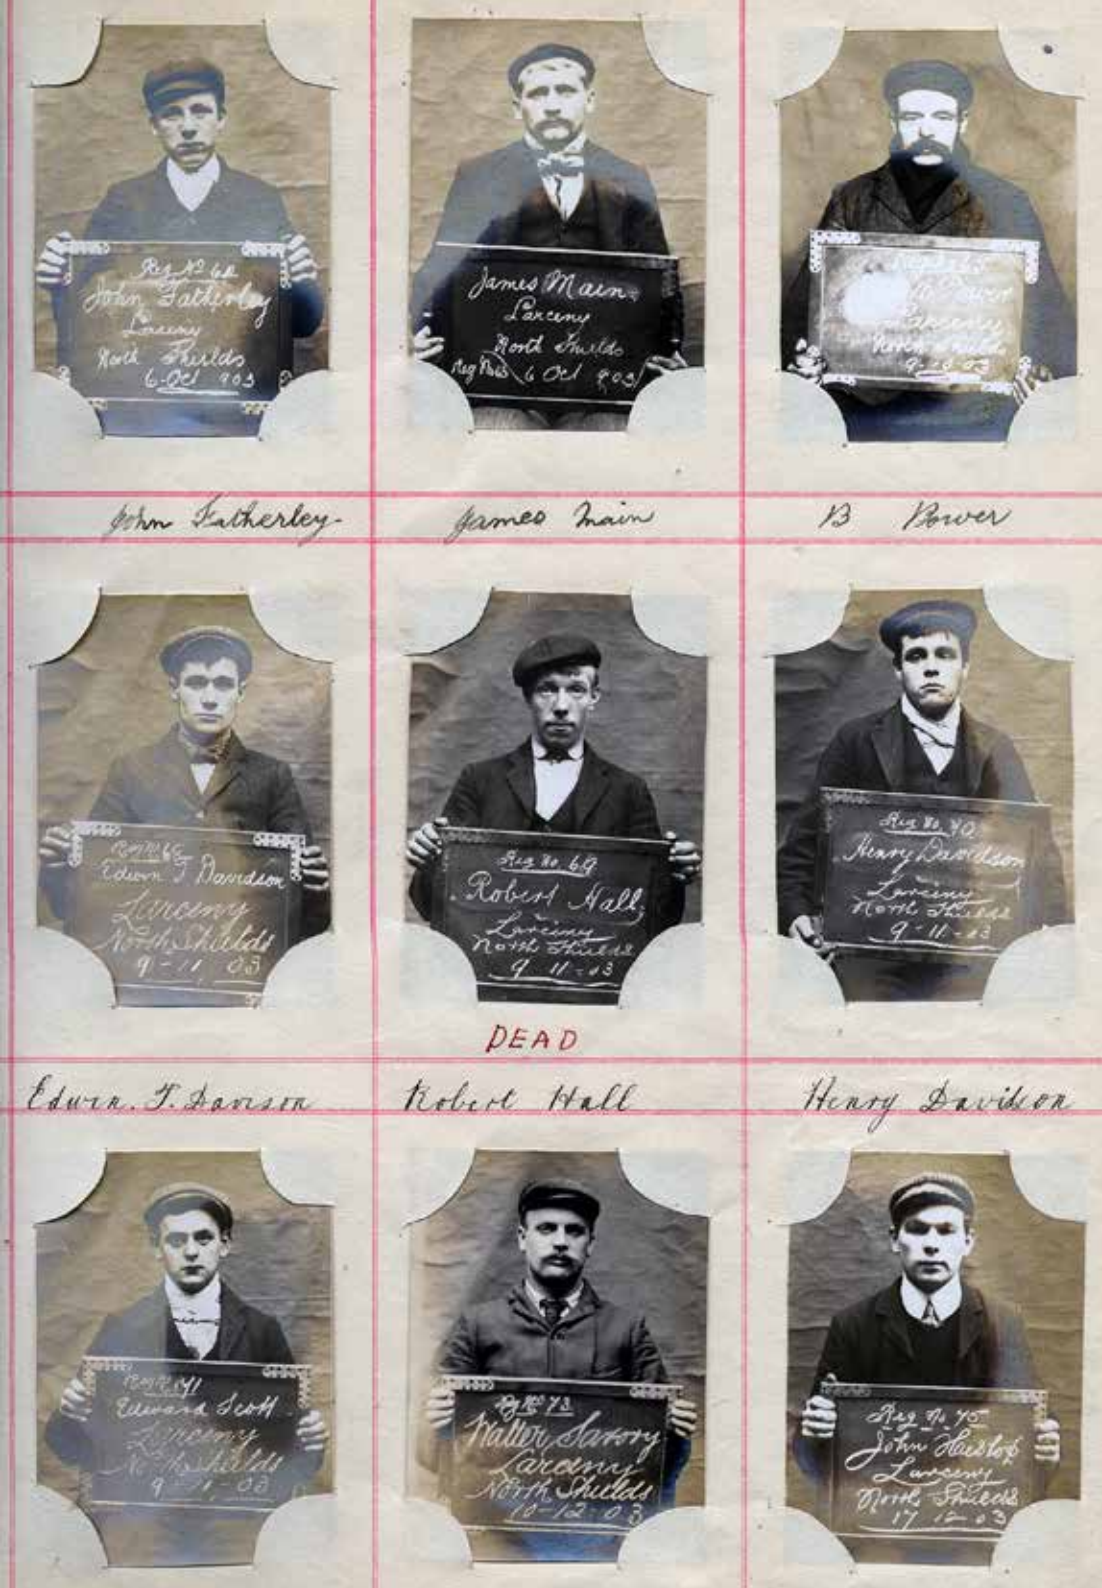 Reg No 62
John Fatherley
Larceny
North Shields
6 Oct 903
James Main
Larceny
North Shields
Reg No 63 6 Oct 903
Power
Larceny
North Shields
9-10-03
John Fatherley-
James Main
B Power
Edwin F Davidson
Larceny
North Shields
9-11-03
Reg No. 69
Robert Hall
Larceny
North Shields
9 11-03
Reg No. 70
Henry Davidson
Larceny
North Shields
9-11-03
DEAD
Edwin. F. Davison
Robert Hall
Henry Davidson
Reg No 71
Edward Scott
Larceny
North Shields
9-11-03
Reg No 73
Walter Savory
Larceny
North Shields
10-12-03
Reg No 75
John Haislop
Larceny
North Shields
17 12-03